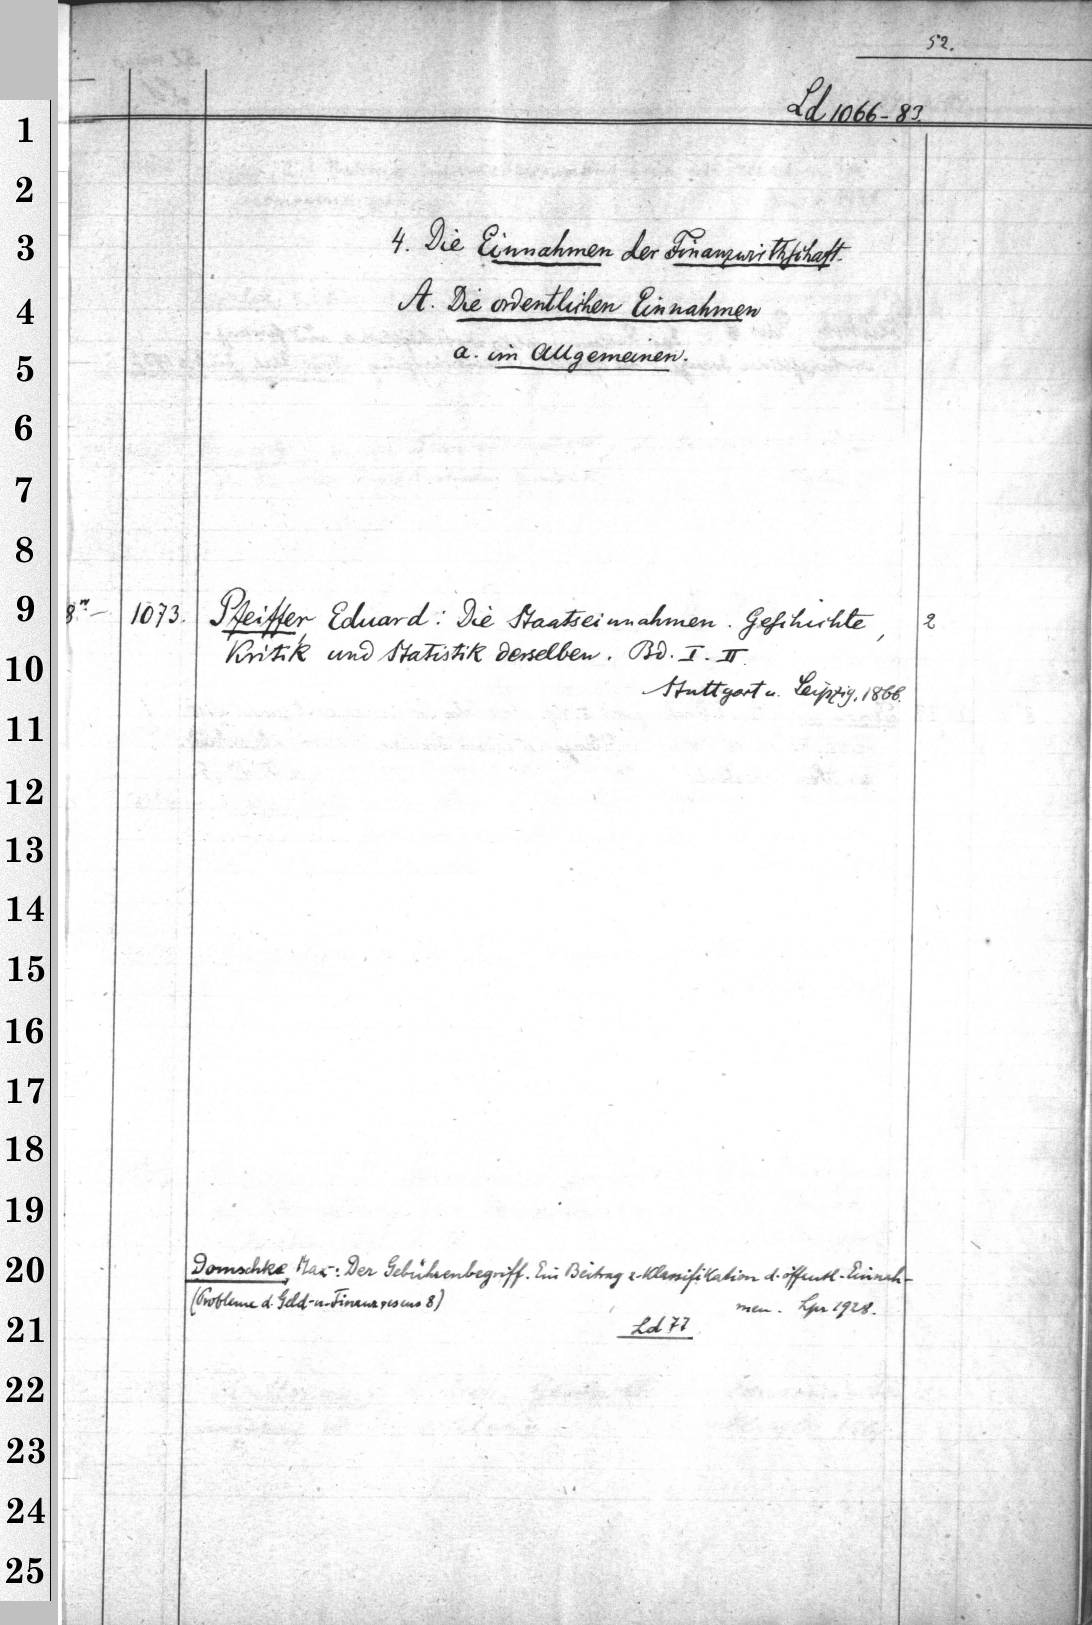 52.
Ld 1066-83.
1
2
3
4
5
6
7
8
9
10
11
12
13
14
15
16
17
18
19
20
21
22
23
24
25
4. Die Einnahmen der Finanzwirthschaft.
A. Die ordentlichen Einnahmen
a. im Allgemeinen.
1073. Pfeiffer, Eduard: Die Staatseinnahmen. Geschichte, 2
Kritik und Statistik derselben. Bd. I. II
Stuttgart u. Leipzig, 1866.
Domschke, Max: Der Gebührenbegriff. Ein Beitrag z. Klassifikation d. öffentl. Einnah-
(Probleme d. Geld- u. Finanzwesens 8) men. Lpz 1928.
Ld 77